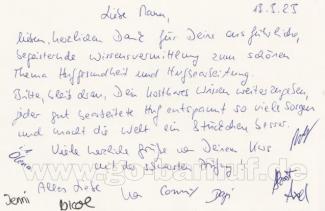 Liebe Manu, 18.3.23
lieben, herzlichen Dank für Deine ausführliche,
begeisternde Wissensvermittlung zum schönen
Thema Hufgesundheit und Hufbearbeitung.
Bitte, bleib dran, Dein kostbares Wissen weiterzugeben,
jeder gut bearbeitete Huf entspannt so viele Sorgen
und macht die Welt ein Stückchen besser.
Viele herzliche Grüße von Deinem Kurs
mit der
www.go-barhuf.de
Alles Liebe
Jenni Nicole Conny Axel